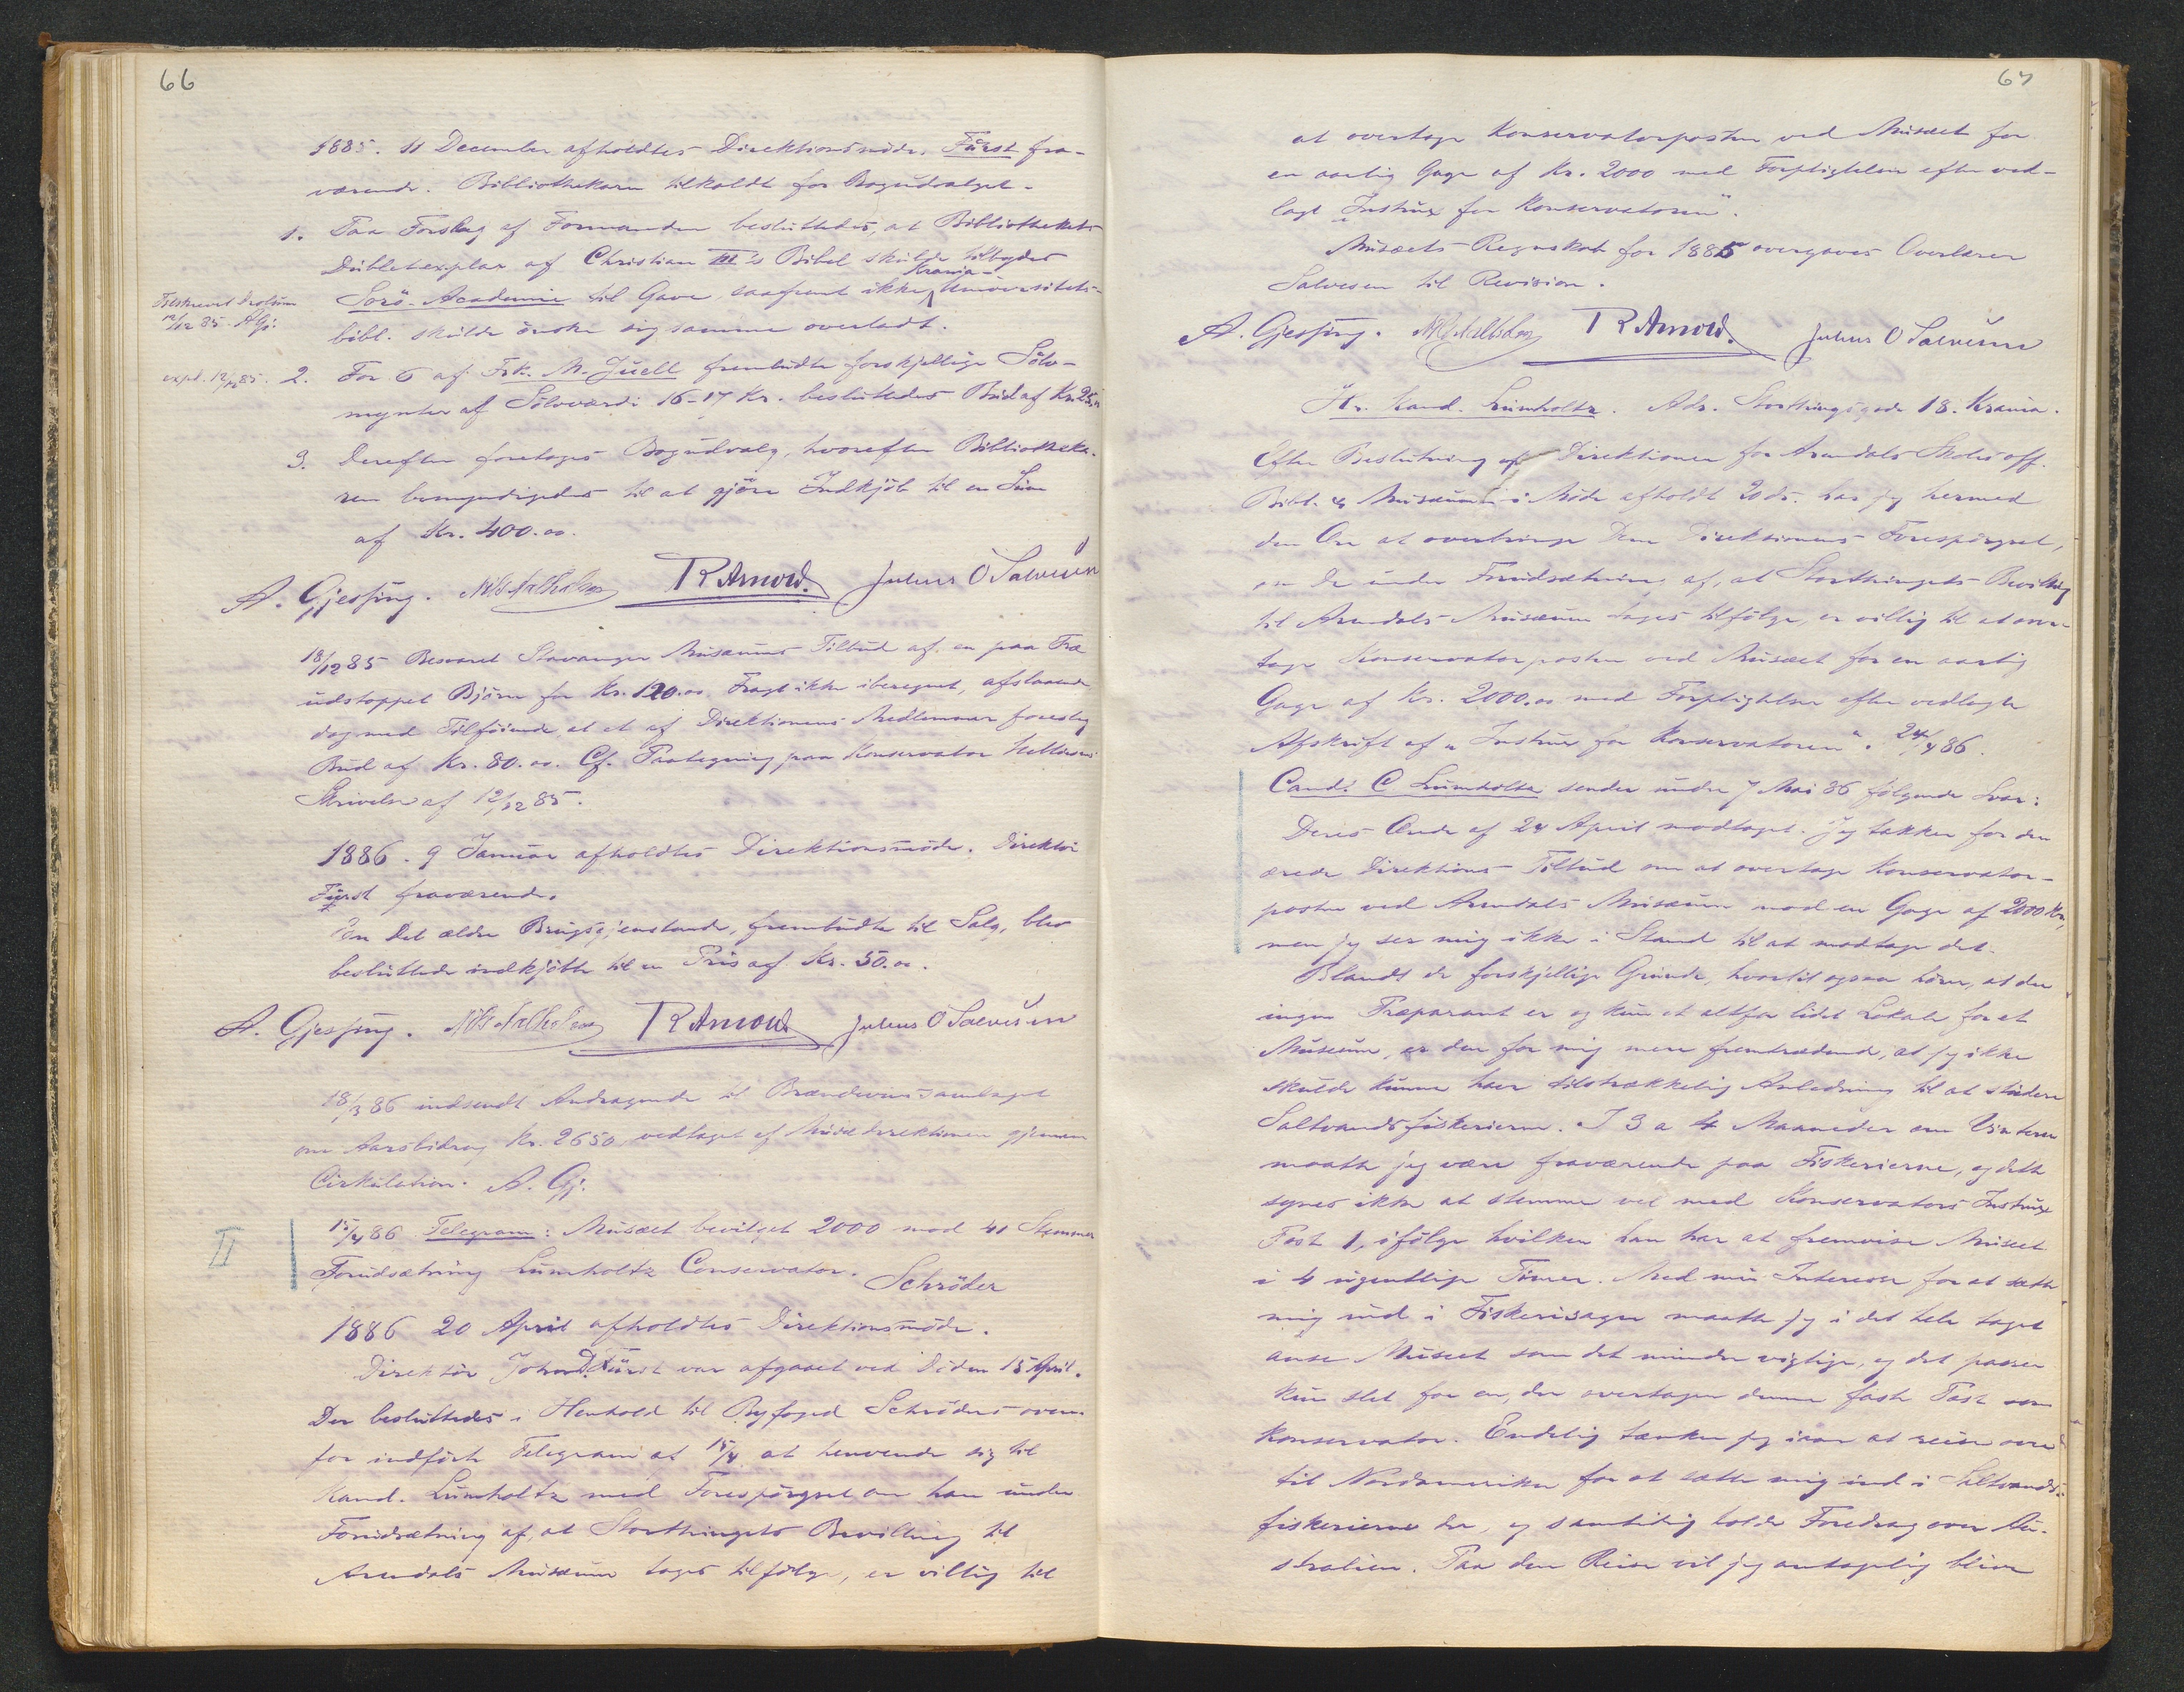 66
1885. 11 December afholdtes Direktionsmöde. Fürst fra-
værende. Bibliothekaren tilkaldt for Bogudvalget.
1. Paa Forslag af Formanden besluttedes, at Bibliothekets
Dubletexplar af Christian III's Bibel skulde tilbydes
Krania-
Sorö-Academie til Gave, saafremt ikke Universitets-
bibl. skulde önske sig samme overladt.
Tilskrevet
12/12 85. AGj.
2. For 6 af Frk. M. Juell frembudte forskjellige Sölv-
mynter af Sölvværdi 16-17 Kr. besluttedes Bud af Kr. 25.
expd. 12/12 85.
3. Derefter foretoges Bogudvalg, hvorefter Bibliotheka-
ren bemyndigedes til at gjöre Indkjöb til en Sum
af Kr. 400.00.
A. Gjessing. R Arnold. Julius O Salvesen
18/12 85 Besvaret Stavanger Musæums Tilbud af en paa Træ
udstoppet Björn for Kr. 120.00 Fragt ikke iberegnet, afslaaende
dog med Tilföiende at et af Direktionens Medlemmer foreslog
Bud af Kr. 80.00. Cf. Paategning paa Konservator
Skrivelse af 12/12 85.
1886. 9 Januar afholdtes Direktionsmöde. Direktör
Fürst fraværende.
En Del ældre Brugsgjenstande, frembudte til Salg, blev
besluttede indkjöbte til en Pris af Kr. 50.00.
A. Gjessing. R Arnold Julius O Salvesen
18/3 86 indsendt Andragende til Brændevinssamlaget
om Aarsbidrag Kr. 2650, vedtaget af Musædirektionen gjennem
Cirkulation. A. Gj.
II
15/4 86 Telegram: Musæet bevilget 2000 mod 41 Stemmer
Forudsætning Lumholtz Conservator.
Schröder
1886 20 April afholdtes Direktionsmöde.
Direktör Johan D. Fürst var afgaaet ved Döden 15 April.
Der besluttedes i Henhold til Byfoged Schröders oven-
for indförte Telegram af 15/4 at henvende sig til
Kand. Lumholtz med Forespörgsel om han under
Forudsætning af, at Storthingets Bevilling til
Arendals Musæum toges tilfölge, er villig til
67
at overtage Konservatorposten ved Musæet for
en aarlig Gage af Kr. 2000 med Forpligtelser efter ved-
lagt „Instrux for Konservatoren".
Musæets Regnskab for 1885 overgaves Overlærer
Salvesen til Revision.
A. Gjessing. R Arnold. Julius O Salvesen
Hr. Kand. Lumholtz. Adr. Storthingsgade 18. Krania.
Efter Beslutning af Direktionen for Arendals Skoles off.
Bibl. & Musæum i Möde afholdt 20 ds. har jeg hermed
den Ære at overbringe Dem Direktionens Forespörgsel,
om De under Forudsætning af, at Storthingets Bevilling
til Arendals Musæum toges tilfölge, er villig til at over-
tage Konservatorposten ved Musæet for en aarlig
Gage af Kr. 2000.00 med Forpligtelser efter vedlagte
Afskrift af „Instrux for Konservatoren". 24/4 86.
Cand. C Lumholtz sender under 7 Mai 86 fölgende Svar:
Deres Ærede af 24 April modtaget. Jeg takker for den
ærede Direktions Tilbud om at overtage Konservator-
posten ved Arendals Musæum mod en Gage af 2000 Kr,
men jeg ser mig ikke i Stand til at modtage det.
Blandt de forskjellige Grunde, hvortil ogsaa hörer, at der
ingen Præparant er og kun et altfor lidet Lokale for et
Museum, er den for mig mere fremtrædende, at jeg ikke
skulde kunne have tilstrækkelig Anledning til at studere
Saltvandsfiskerierne. I 3 a 4 Maaneder om Vinteren
maatte jeg være fraværende paa Fiskerierne, og dette
synes ikke at stemme vel med Konservators Instrux
Post 1, ifölge hvilken han har at fremvise Museet
i 4 ugentlige Timer. Med min Interesse for at sætte
mig ind i Fiskerisagen maatte jeg i det hele taget
anse Museet som det mindre vigtige, og det passer
kun slet for en, der overtager denne faste Post som
Konservator. Endelig tænker jeg iaar at reise over
til Nordamerika for at sætte mig ind i Saltvands-
fiskerierne der, og samtidig holde Foredrag over Au-
stralien. Paa den Reise vil jeg antagelig blive